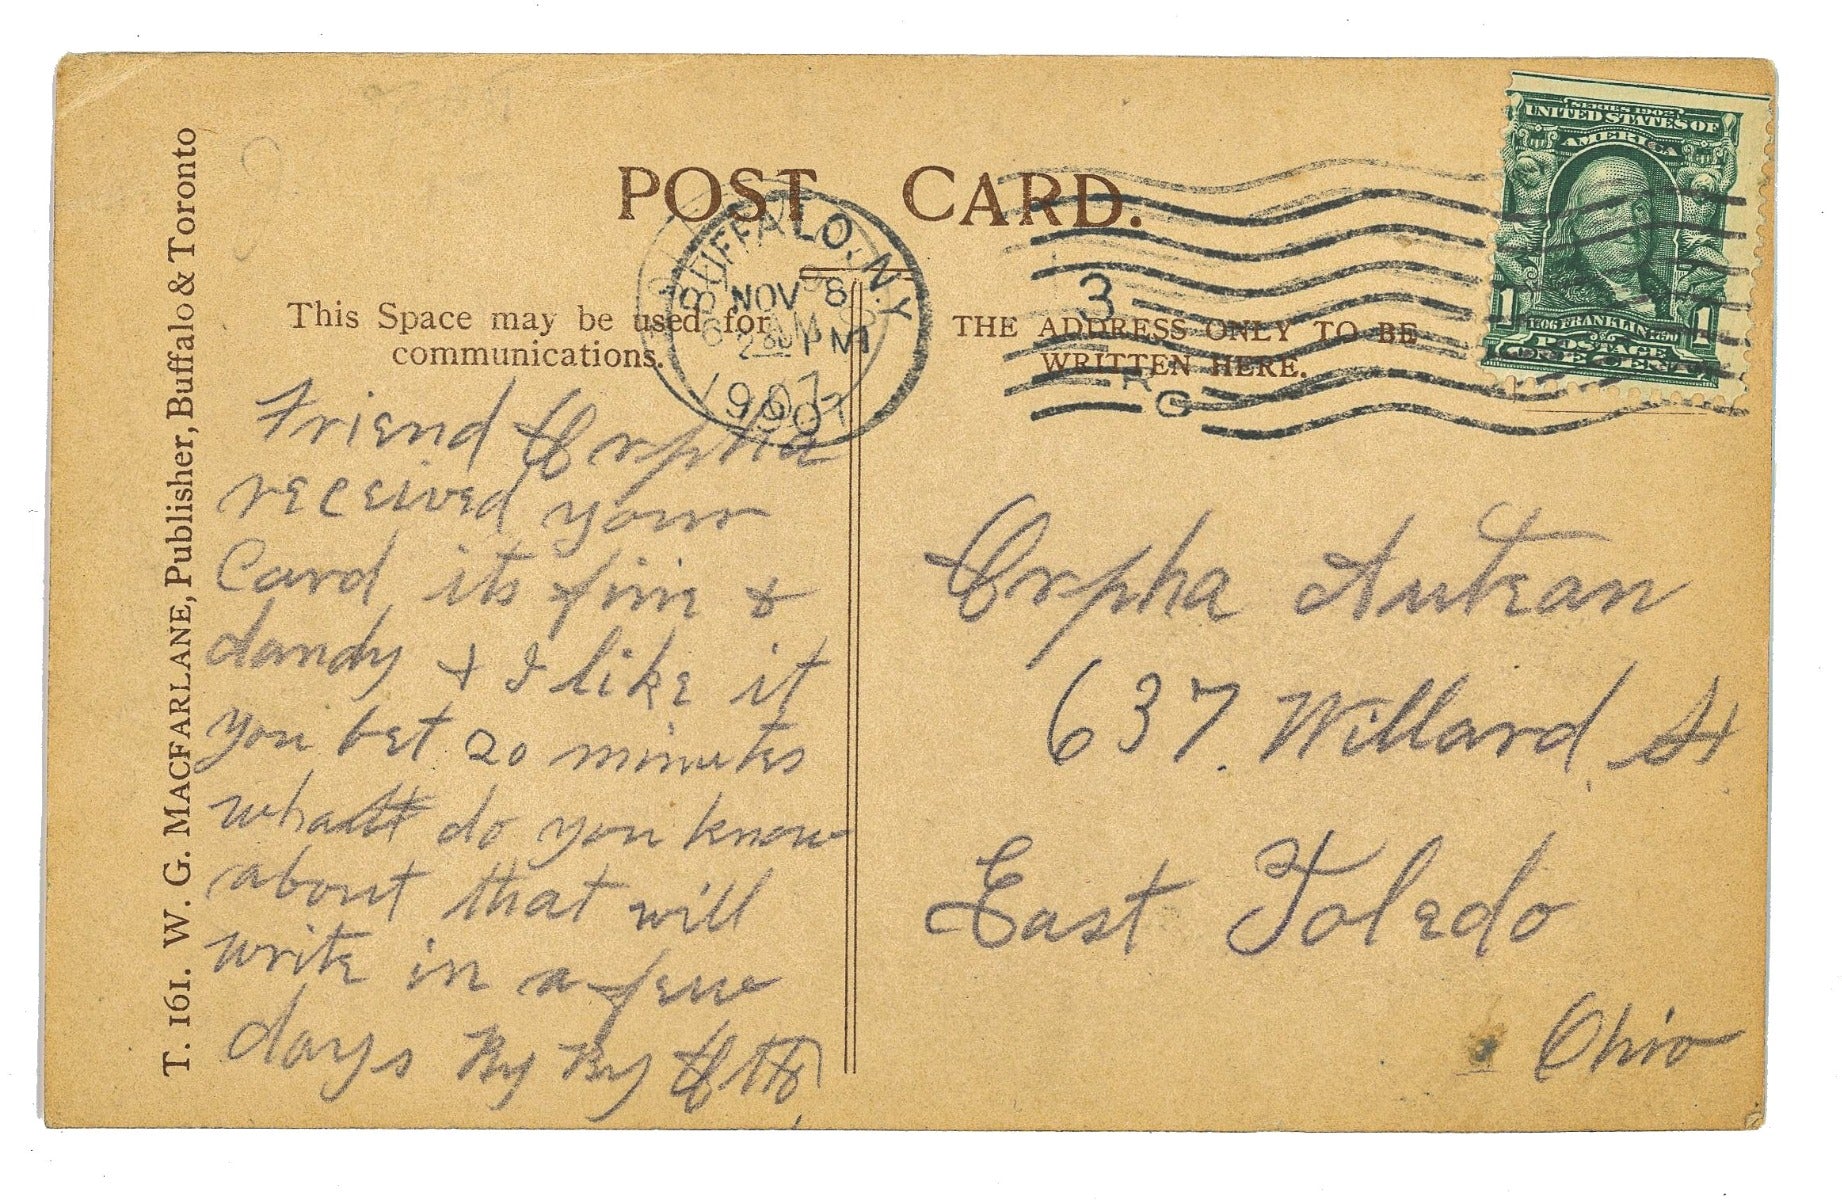 POST CARD.
This Space may be used for
communications.
THE ADDRESS ONLY TO BE
WRITTEN HERE.
T. 161. W. G. MACFARLANE, Publisher, Buffalo & Toronto
BUFFALO, N.Y.
NOV 8
2 30 PM
1907
3
SERIES 1902
UNITED STATES OF
AMERICA
1706 FRANKLIN 1790
1 1
POSTAGE
ONE CENT
Friend Orpha
received your
Card its fine &
dandy & I like it
you bet 20 minutes
what do you know
about that will
write in a few
days By By Otto
Orpha Autean
637. Willard St
East Toledo
Ohio